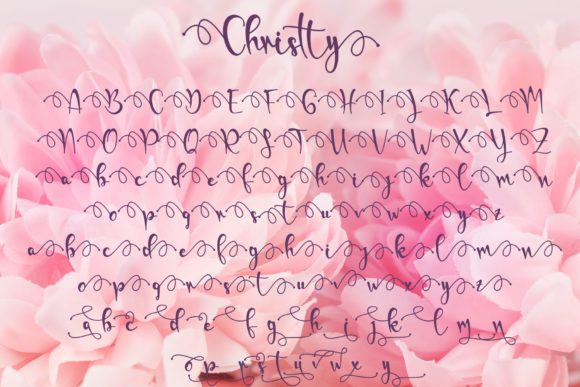 Christty
A B C D E F G H I J K L M
N O P Q R S T U V W X Y Z
a b c d e f g h i j k l m n
o p q r s t u v w x y z
a b c d e f g h i j k l m n
o p q r s t u v w x y z
a b c d e f g h i j k l m n
o p r s t u v w x y